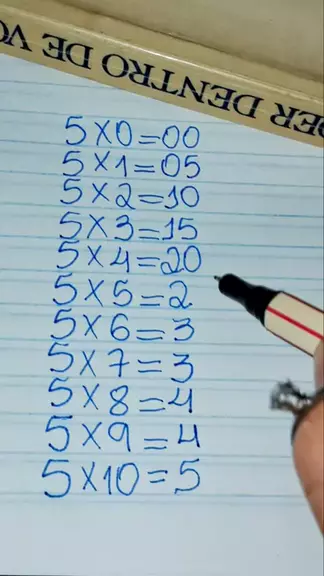 PER DENTRO DE VO
5X0=00
5X1=05
5X2=10
5X3=15
5X4=20
5X5=2
5X6=3
5X7=3
5X8=4
5X9=4
5X10=5